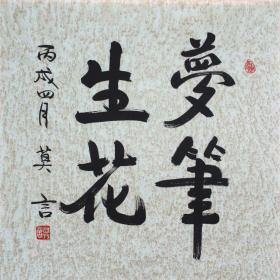 夢筆
生花
丙戌四月 莫言